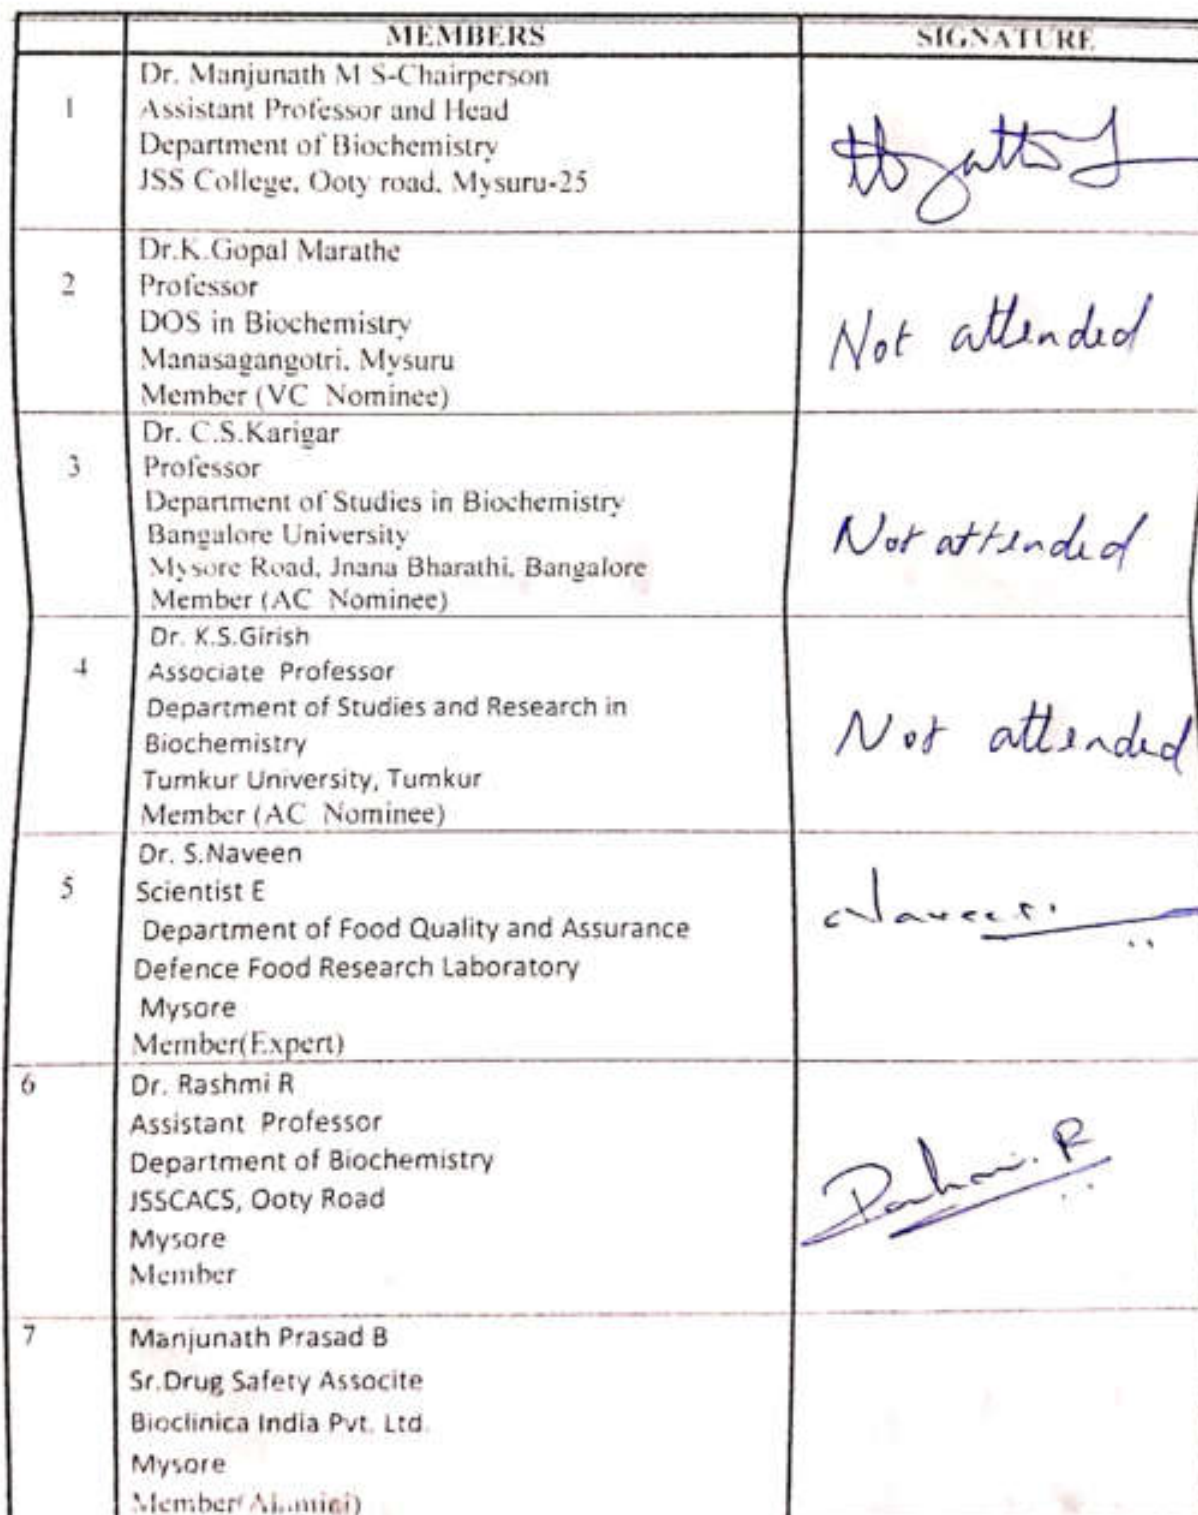 MEMBERS SIGNATURE
1 Dr. Manjunath M S-Chairperson
Assistant Professor and Head
Department of Biochemistry
JSS College, Ooty road, Mysuru-25
2 Dr.K.Gopal Marathe
Professor
DOS in Biochemistry
Manasagangotri, Mysuru
Member (VC Nominee)
Not attended
3 Dr. C.S.Karigar
Professor
Department of Studies in Biochemistry
Bangalore University
Mysore Road, Jnana Bharathi, Bangalore
Member (AC Nominee)
Not attended
4 Dr. K.S.Girish
Associate Professor
Department of Studies and Research in
Biochemistry
Tumkur University, Tumkur
Member (AC Nominee)
Not attended
5 Dr. S.Naveen
Scientist E
Department of Food Quality and Assurance
Defence Food Research Laboratory
Mysore
Member(Expert)
Naveen
6 Dr. Rashmi R
Assistant Professor
Department of Biochemistry
JSSCACS, Ooty Road
Mysore
Member
Rashmi. R
7 Manjunath Prasad B
Sr.Drug Safety Associte
Bioclinica India Pvt. Ltd.
Mysore